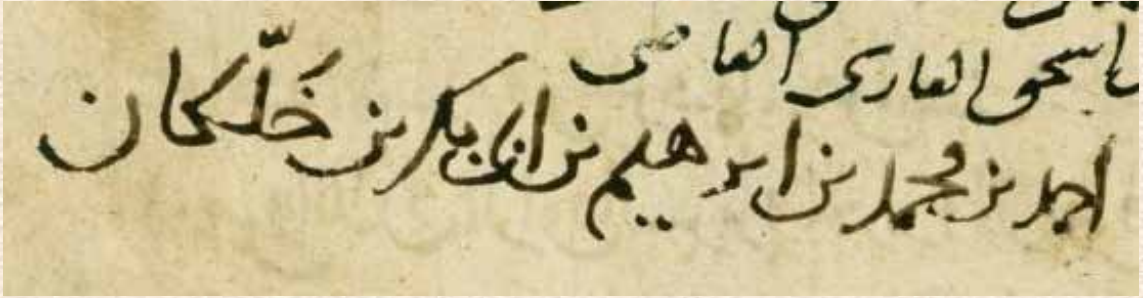 اسحق القارى القاضى
احمد بن محمد بن ابرهيم بن ابى بكر بن خَلّكان